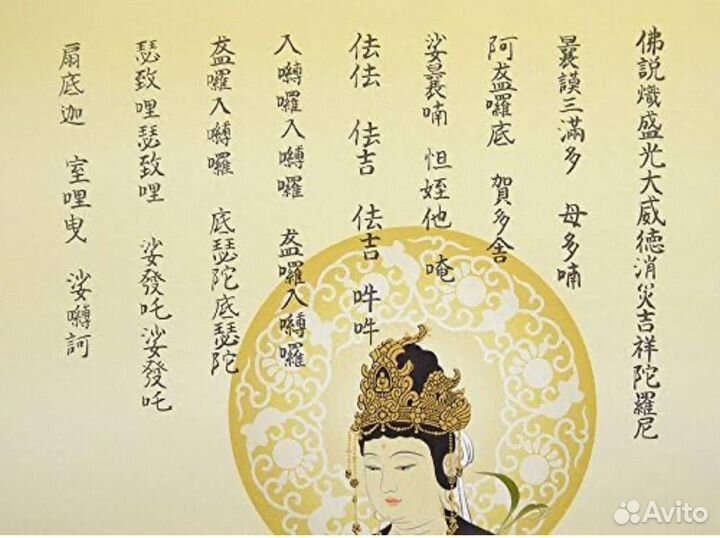 佛説熾盛光大威德消災吉祥陀羅尼
曩謨三滿多 母多喃
阿盋囉底 賀多舍
娑曩喃 怛姪他 唵
佉佉 佉吉 佉吉 吽吽
入嚩囉入嚩囉 盋囉入嚩囉
盋囉入嚩囉 底瑟陀底瑟陀
瑟致哩瑟致哩 娑發吒娑發吒
扇底迦 室哩曳 娑嚩訶
Avito